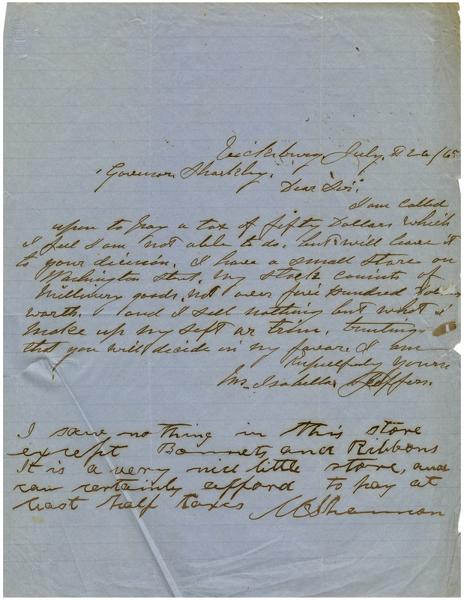 Vicksburg July 26/65
Govenor Sharkley.
Dear Sir.
I am called
upon to pay a tax of fifty Dollars which
I feel I am not able to do. but will leave it
to your dicision. I have a small store on
Washington Street. my stock consists of
Millinery goods, not over five Hundred
worth. and I sell nothing but what I
make up my self or trim. trusting
that you will decide in my favor. I am
Respectfuly yours
Mrs. Isabella Jeffers.
I saw nothing in this store
except Bonnets and Ribbons
It is a very nice little store, and
can certainly afford to pay at
least half taxes M E Shannon